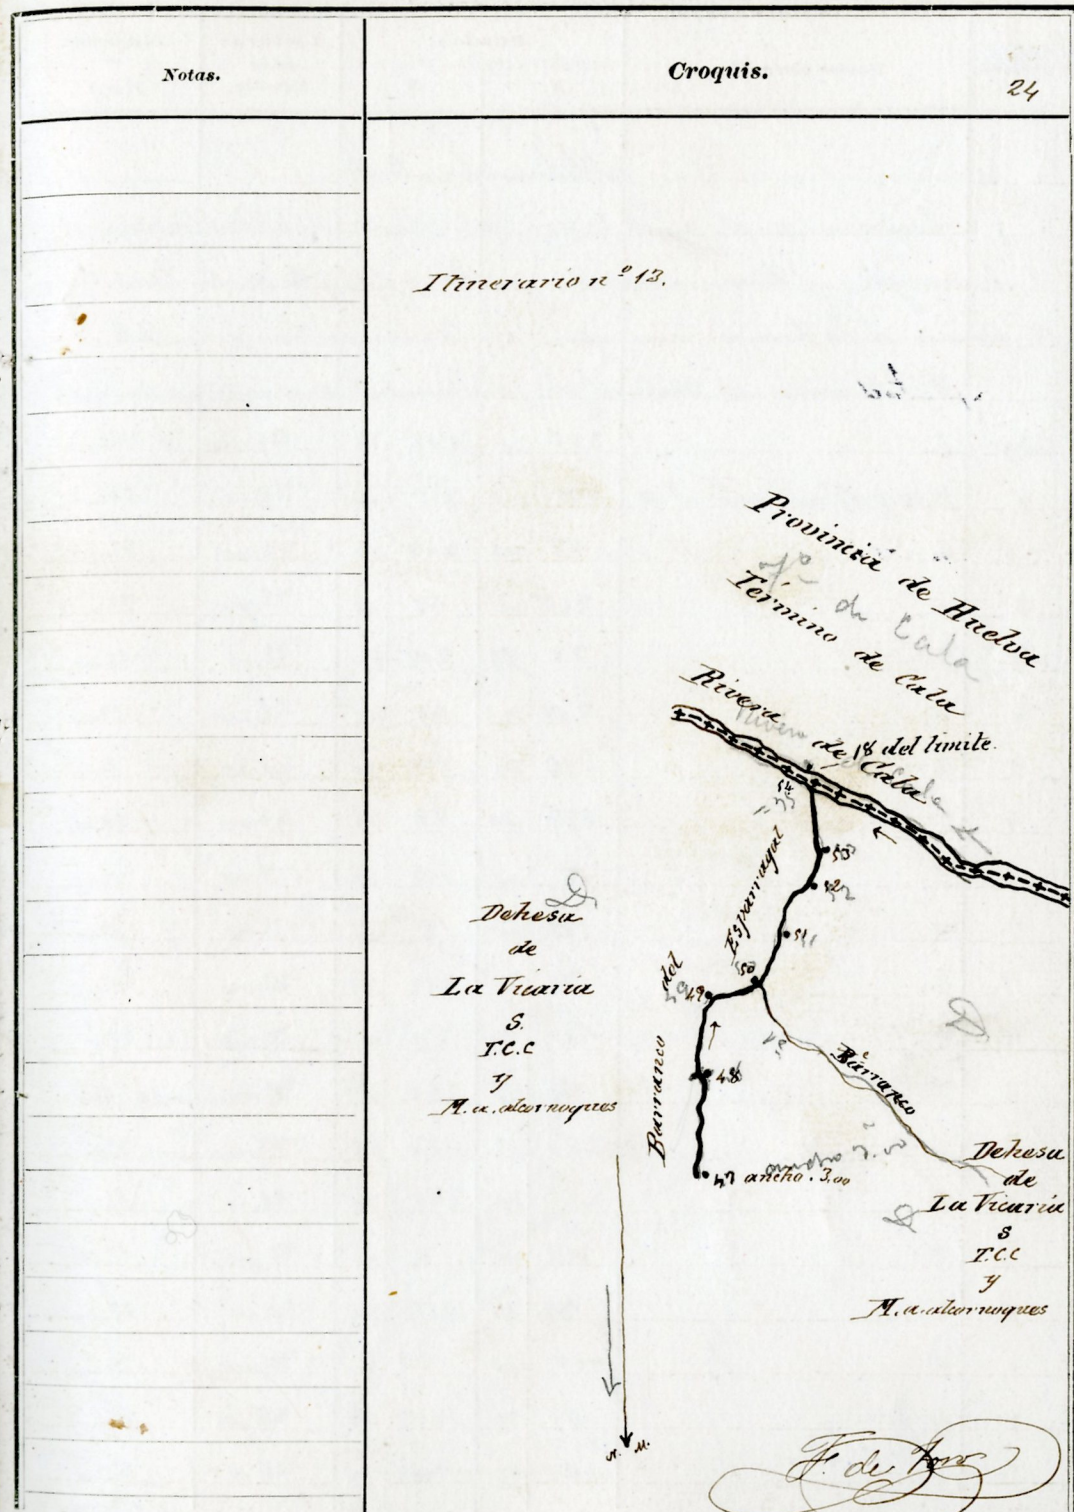 Notas.
Croquis.
24
Itinerario nº 13.
Provincia de Huelva
Tº de Cala
Término de Cala
Rivera de Cala
18 del limite.
54
53
52
51
50
49
48
47 ancho. 3,00
Barranco del Esparragal
Barranco
Dehesa
de
La Vicaria
S.
T.C.C
y
M.a.alcornoques
Dehesa
de
La Vicaria
S
T.C.C
y
M.a.alcornoques
N. M.
F. de Toro